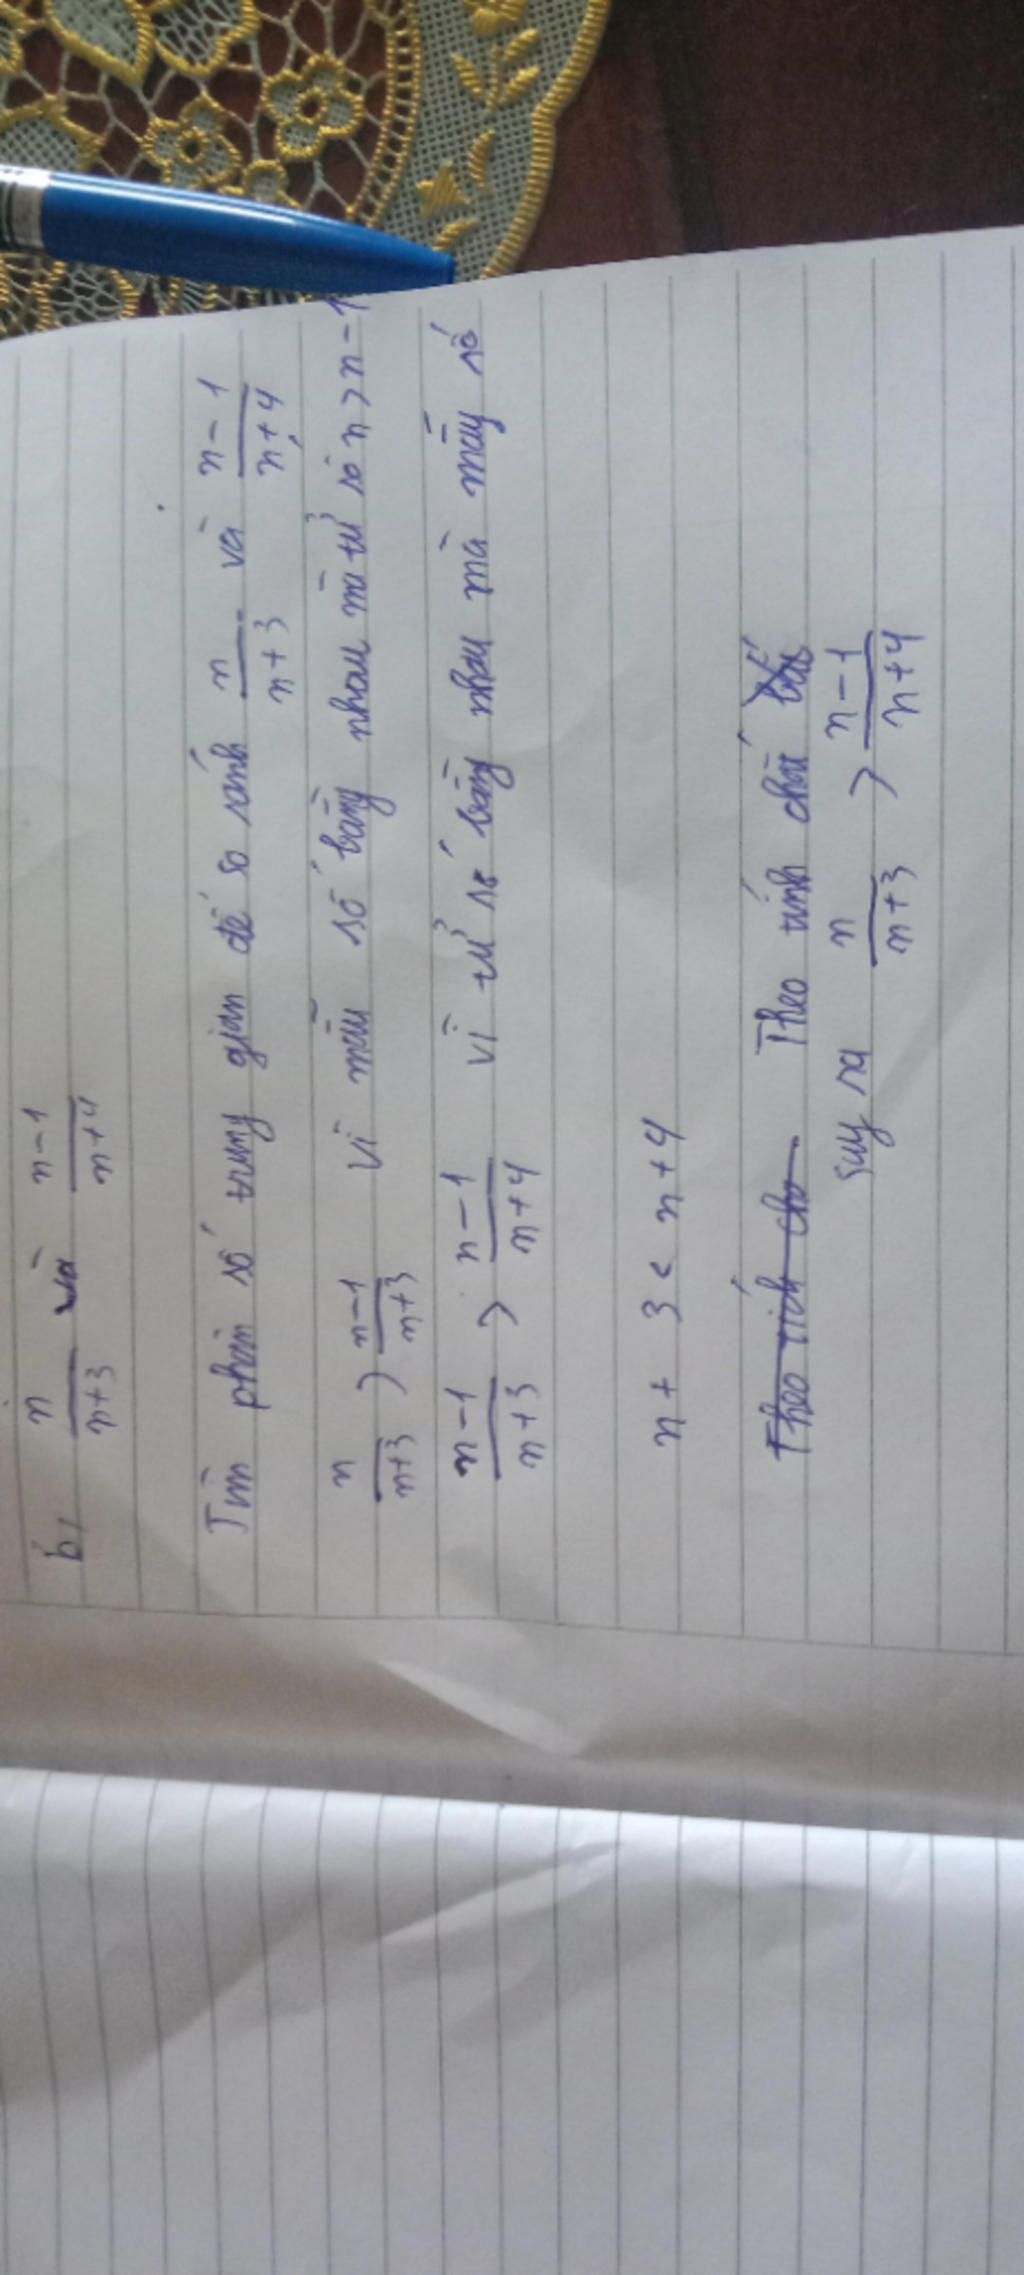 b, n/n+3 và n-1/n+4
Tìm phân số trung gian để so sánh n/n+3 và n-1/n+4
n/n+3 > n-1/n+3 vì mẫu số bằng nhau mà tử số n > n-1
n-1/n+3 > n-1/n+4 vì tử số bằng nhau mà mãy số
n + 3 < n+4
Theo tích cho Theo tính chất
suy ra n/n+3 > n-1/n+4